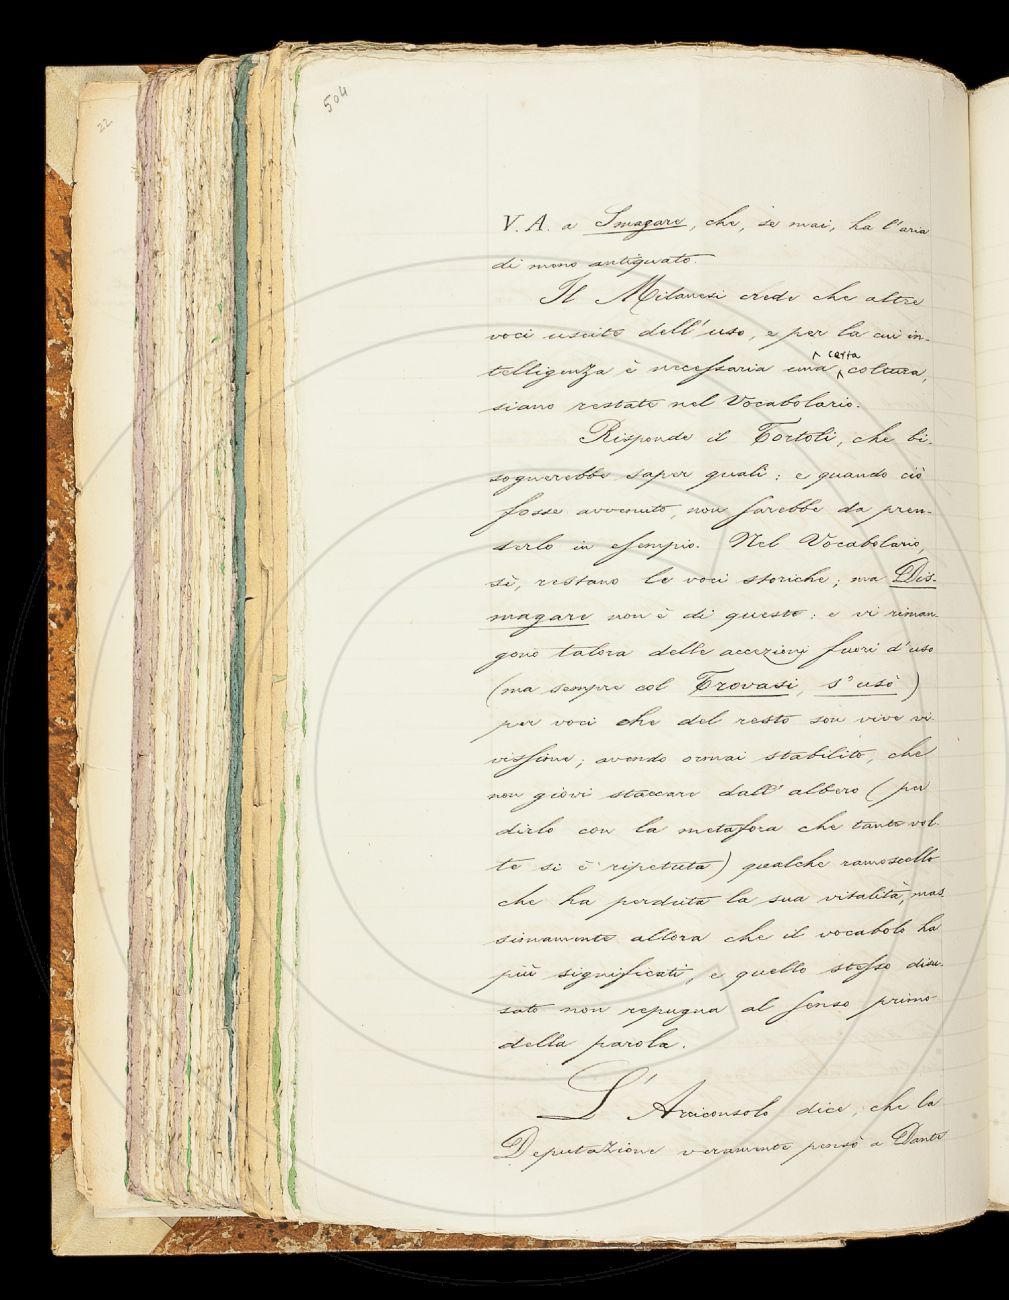 504
22
V. A. a Smagare, che, se mai, ha l'aria
di meno antiquato.
Il Milanesi crede che altre
voci uscite dell'uso, e per la cui in-
telligenza è necessaria una certa coltura,
siano restate nel Vocabolario.
Risponde il Tortoli, che bi-
sognerebbe saper quali: e quando ciò
fosse avvenuto, non sarebbe da pren-
derlo in esempio. Nel Vocabolario,
sì, restano le voci storiche; ma Dis-
magare non è di queste: e vi riman-
gono talora delle accezioni fuori d'uso
(ma sempre col Trovasi, s'usò)
per voci che del resto son vive vi-
vissime; avendo ormai stabilito, che
non giovi staccare dall'albero (per
dirlo con la metafora che tante vol-
te si è ripetuta) qualche ramoscello
che ha perduta la sua vitalità, mas-
simamente allora che il vocabolo ha
più significati, e quello stesso disu-
sato non repugna al senso primo
della parola.
L'Arciconsolo dice, che la
Deputazione veramente pensò a Dante